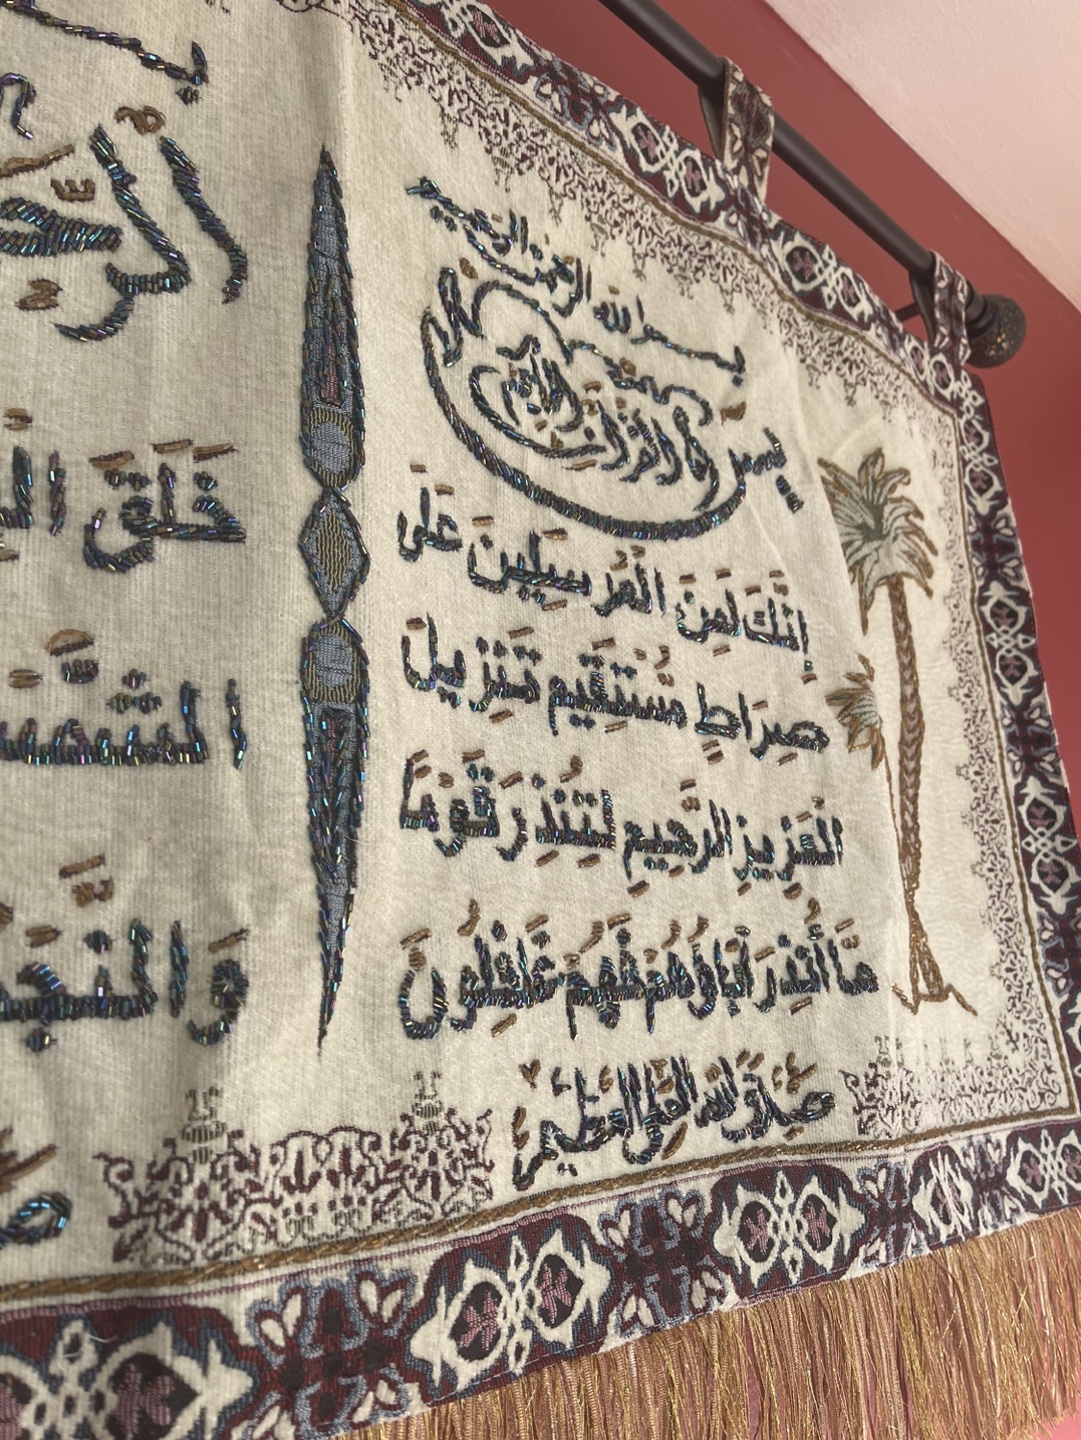 بسم الله الرحمن الرحيم
يس والقرآن الحكيم
إِنَّكَ لَمِنَ الْمُرْسَلِينَ عَلَى
صِرَاطٍ مُسْتَقِيمٍ تَنْزِيلَ
الْعَزِيزِ الرَّحِيمِ لِتُنْذِرَ قَوْمًا
مَا أُنْذِرَ آبَاؤُهُمْ فَهُمْ غَافِلُونَ
صَدَقَ اللهُ الْعَلِيُّ الْعَظِيمُ
خَلَقَ
الشَّمْسُ
وَالنَّجْمُ